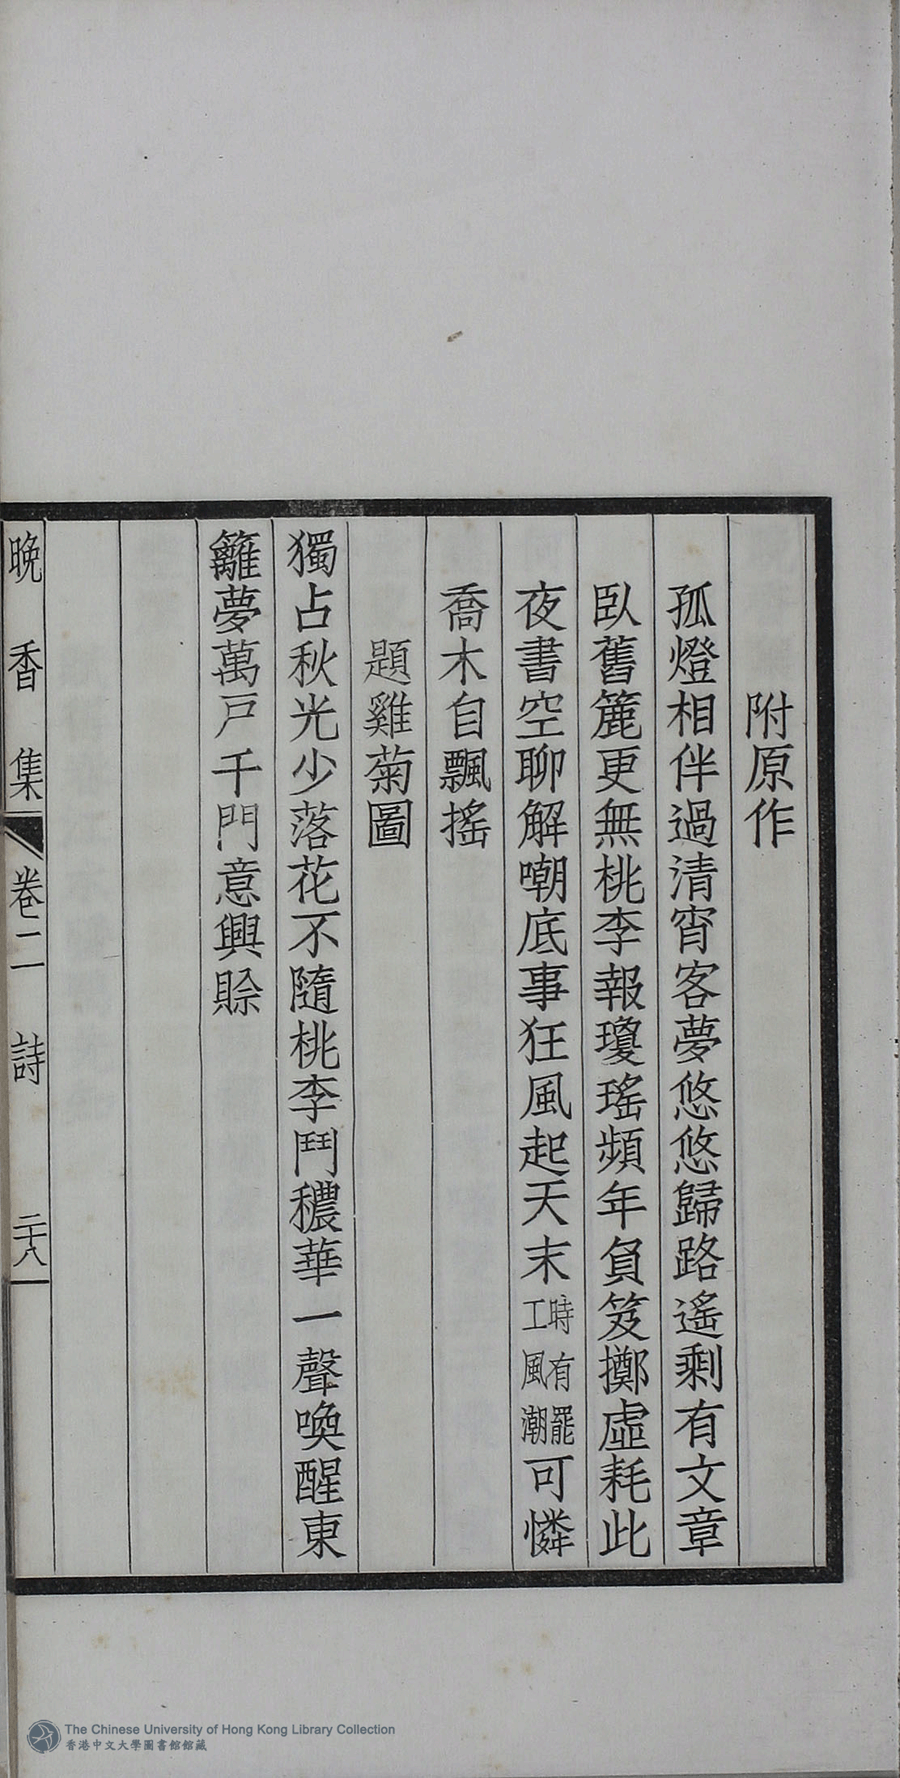 附原作
孤燈相伴過清宵客夢悠悠歸路遙剩有文章
臥舊簏更無桃李報瓊瑤頻年負笈擲虛耗此
夜書空聊解嘲底事狂風起天末時有罷工風潮可憐
喬木自飄搖
題雞菊圖
獨占秋光少落花不隨桃李鬥穠華一聲喚醒東
籬夢萬戶千門意興賒
晚香集 卷二 詩 二十八
The Chinese University of Hong Kong Library Collection
香港中文大學圖書館館藏